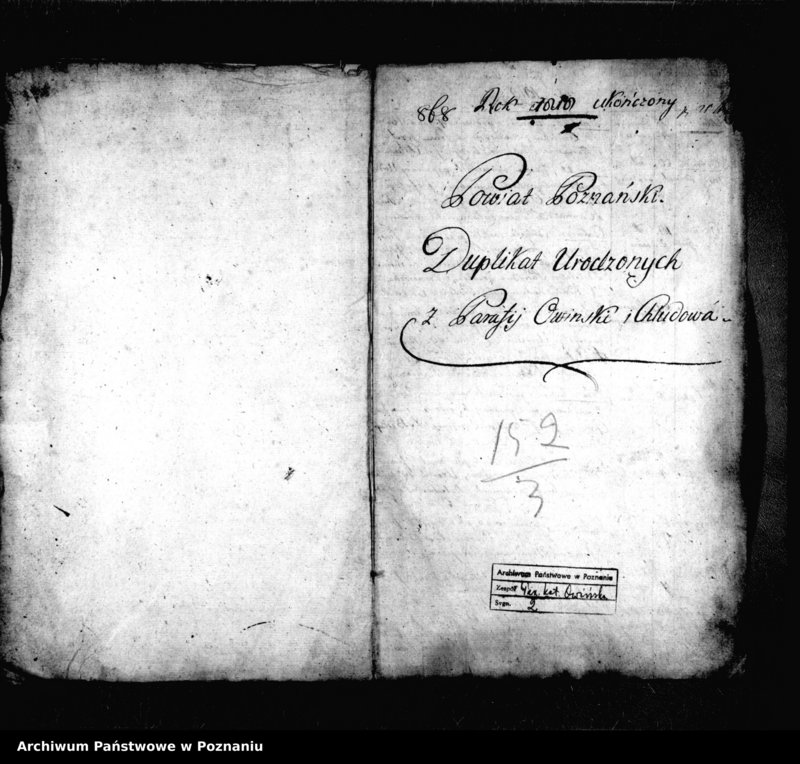 868 Rok 1819 ukończony
Powiat Poznański.
Duplikat Urodzonych
z Parafij Owinski i Chludowá
152
3
Archiwum Państwowe w Poznaniu
Zespół Urz. kat. Owińska
Sygn. 2
Archiwum Państwowe w Poznaniu